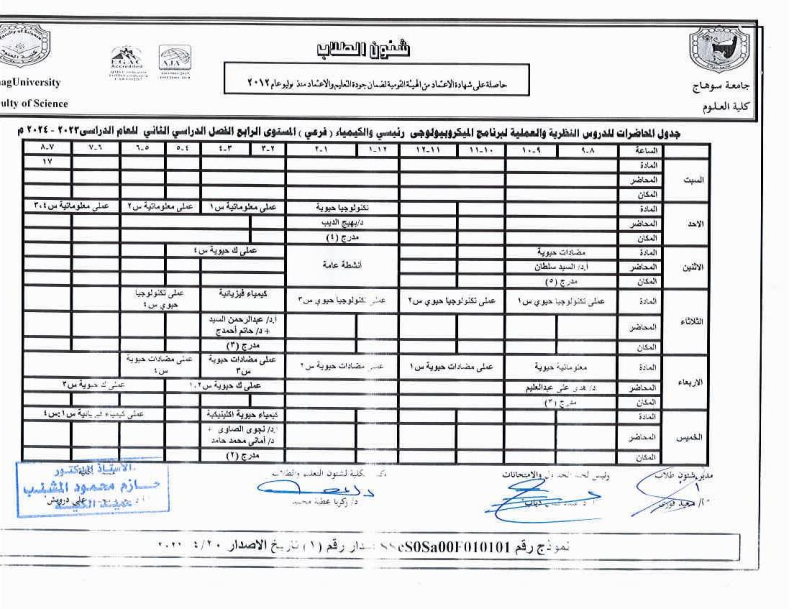 شئون الطلاب
حاصلة على شهادة الاعتماد من الهيئة القومية لضمان جودة التعليم والاعتماد منذ يوليو عام ٢٠١٢
جامعة سوهاج
كلية العلوم
EGAC
Accredited
AJA
nagUniversity
culty of Science
جدول المحاضرات للدروس النظرية والعملية لبرنامج الميكروبيولوجى رئيسي والكيمياء ( فرعي ) المستوى الرابع الفصل الدراسي الثاني للعام الدراسى ٢٠٢٣ - ٢٠٢٤ م
الساعة ٨-٩ ٩-١٠ ١٠-١١ ١١-١٢ ١٢-١ ١-٢ ٢-٣ ٣-٤ ٤-٥ ٥-٦ ٦-٧ ٧-٨
السبت
المادة ١٧
المحاضر
المكان
الاحد
المادة تكنولوجيا حيوية عملى معلوماتية س١ عملى معلوماتية س٢ عملى معلوماتية س٣،٤
المحاضر د/بهيج الديب
المكان مدرج (٤)
الاثنين
المادة مضادات حيوية أنشطة عامة عملى ك حيوية س٤
المحاضر أ.د/ السيد سلطان
المكان مدرج (٥)
الثلاثاء
المادة عملى تكنولوجيا حيوي س١ عملى تكنولوجيا حيوي س٢ عملى تكنولوجيا حيوي س٣ كيمياء فيزيائية عملى تكنولوجيا حيوي س٤
المحاضر أ.د/ عبدالرحمن السيد + د/ حاتم أحمد
المكان مدرج (٣)
الاربعاء
المادة معلوماتية حيوية عملى مضادات حيوية س١ عملى مضادات حيوية س٢ عملى مضادات حيوية س٣ عملى مضادات حيوية س٤
المحاضر د/ هدى على عبدالعليم عملى ك حيوية س١،٢ عملى ك حيوية س٣
المكان مدرج (٣)
الخميس
المادة كيمياء حيوية اكلينيكية عملى كيمياء فيزيائية س١:س٤
المحاضر أ.د/ نجوى الصاوى + د/ أمانى محمد حامد
المكان مدرج (٢)
مدير شئون طلاب
رئيس لجنة الجداول والامتحانات
كلية لشئون التعليم والطلاب
د/ زكريا عطية محمد
الأستاذ الدكتور
حازم محمود المشنب
عميد الكلية
على درويش
نموذج رقم SScS0Sa00F010101 اصدار رقم (١) تاريخ الاصدار